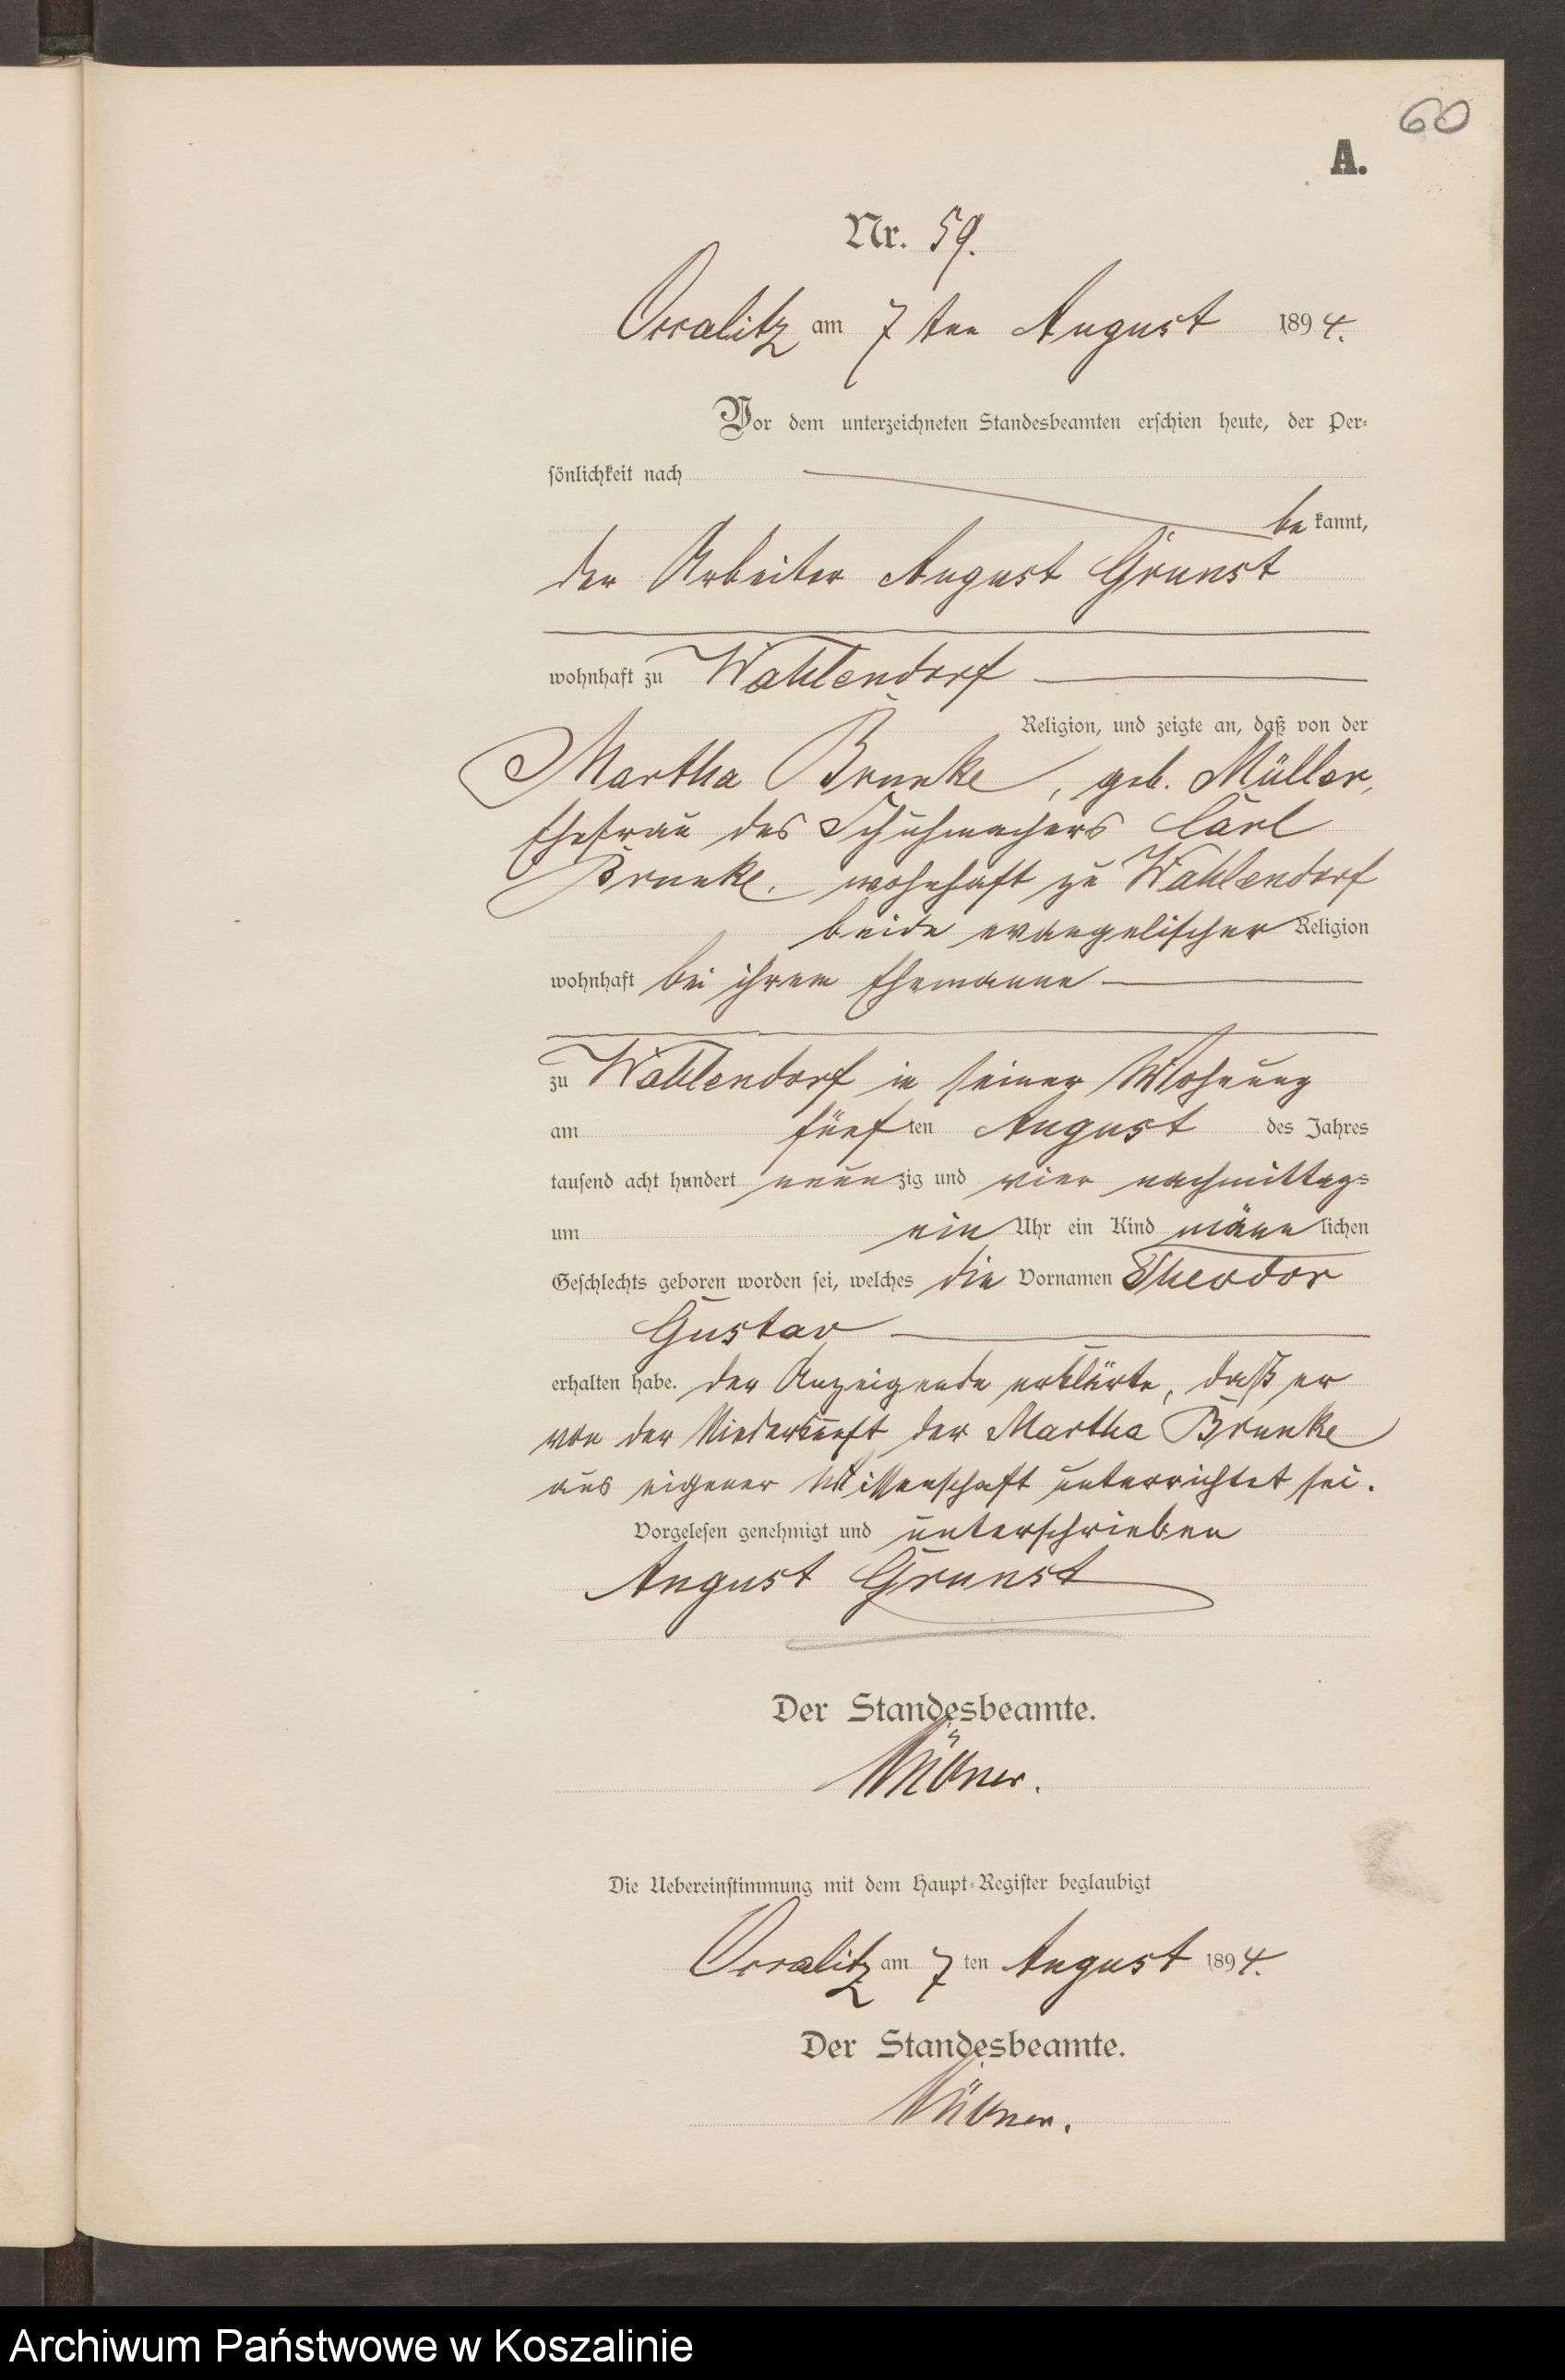 60
A.
Nr. 59.
am 7ten August 1894.
Vor dem unterzeichneten Standesbeamten erschien heute, der Per-
sönlichkeit nach
bekannt,
der Arbeiter August Grunst
wohnhaft zu Wahlendorf
Religion, und zeigte an, daß von der
Martha Brunke, geb. Müller,
Ehefrau des Schuhmachers Carl
Brunke, wohnhaft zu Wahlendorf
beide evangelischer Religion
wohnhaft bei ihrem Ehemanne
zu Wahlendorf in seiner Wohnung
am fünften August des Jahres
tausend acht hundert neunzig und vier nachmittags
um ein Uhr ein Kind männlichen
Geschlechts geboren worden sei, welches die Vornamen Theodor
Gustav
erhalten habe. der Anzeigende erklärte, daß er
von der Niederkunft der Martha Brunke
aus eigener Wissenschaft unterrichtet sei.
Vorgelesen genehmigt und unterschrieben
August Grunst
Der Standesbeamte.
Die Uebereinstimmung mit dem Haupt-Register beglaubigt
am 7ten August 1894.
Der Standesbeamte.
Archiwum Państwowe w Koszalinie